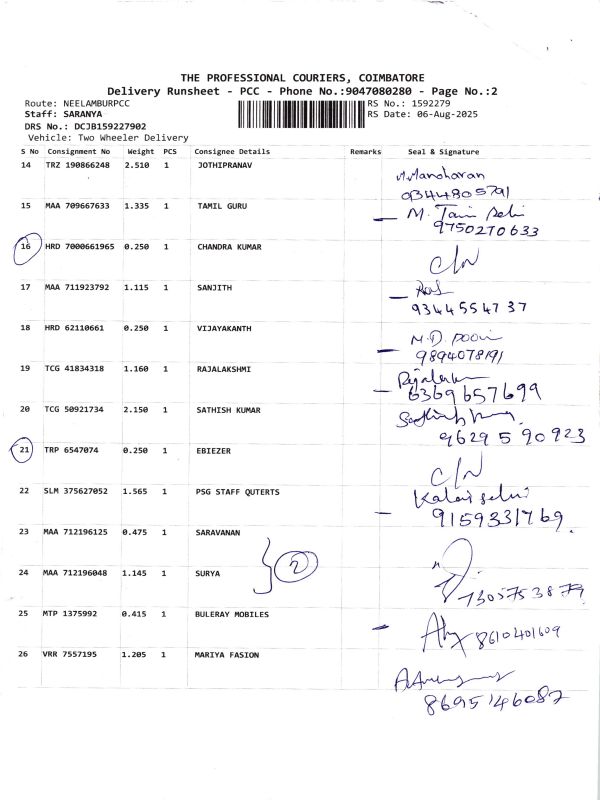 THE PROFESSIONAL COURIERS, COIMBATORE
Delivery Runsheet - PCC - Phone No.:9047080280 - Page No.:2
Route: NEELAMBURPCC
Staff: SARANYA
DRS No.: DCJB159227902
Vehicle: Two Wheeler Delivery
RS No.: 1592279
RS Date: 06-Aug-2025
S No Consignment No Weight PCS Consignee Details Remarks Seal & Signature
14 TRZ 190866248 2.510 1 JOTHIPRANAV
M.Manoharan
9344805791
15 MAA 709667633 1.335 1 TAMIL GURU
9750270633
16 HRD 7000661965 0.250 1 CHANDRA KUMAR
C/N
17 MAA 711923792 1.115 1 SANJITH
9344554737
18 HRD 62110661 0.250 1 VIJAYAKANTH
9894078191
19 TCG 41834318 1.160 1 RAJALAKSHMI
6369657699
20 TCG 50921734 2.150 1 SATHISH KUMAR
9629590923
21 TRP 6547074 0.250 1 EBIEZER
C/N
22 SLM 375627052 1.565 1 PSG STAFF QUTERTS
Kalai selvi
9159331769
23 MAA 712196125 0.475 1 SARAVANAN
2
24 MAA 712196048 1.145 1 SURYA
25 MTP 1375992 0.415 1 BULERAY MOBILES
8610401609
26 VRR 7557195 1.205 1 MARIYA FASION
8695146087